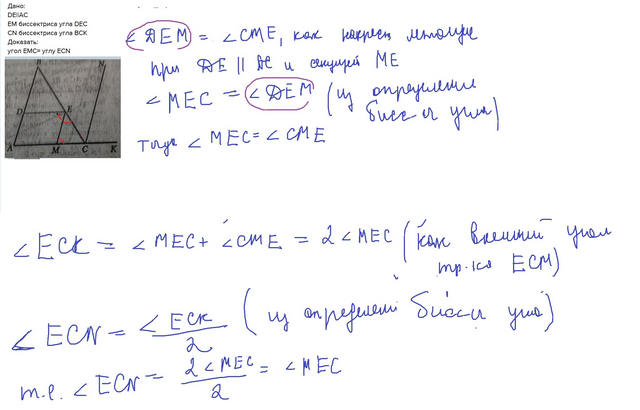 Дано:
DEIIAC
EM биссектриса угла DEC
CN биссектриса угла BCK
Доказать:
угол EMC= углу ECN
B N
D E
A M C K
∠DEM = ∠CME, как накрест лежащие
при DE || AC и секущей ME
∠MEC = ∠DEM (из определения
бисс-и угла)
тогда ∠MEC = ∠CME
∠ECK = ∠MEC + ∠CME = 2∠MEC (как внешний угол
тр-ка ECM)
∠ECN = ∠ECK/2 (из определени бисс-и угла)
т.е. ∠ECN = 2∠MEC/2 = ∠MEC